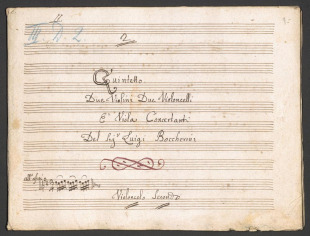 III. D. 2.
2
Quintetto
Due Violini Due Violoncelli
E' Viola Concertanti
Del Sigr Luigi Boccherini
Violoncelo Secondo